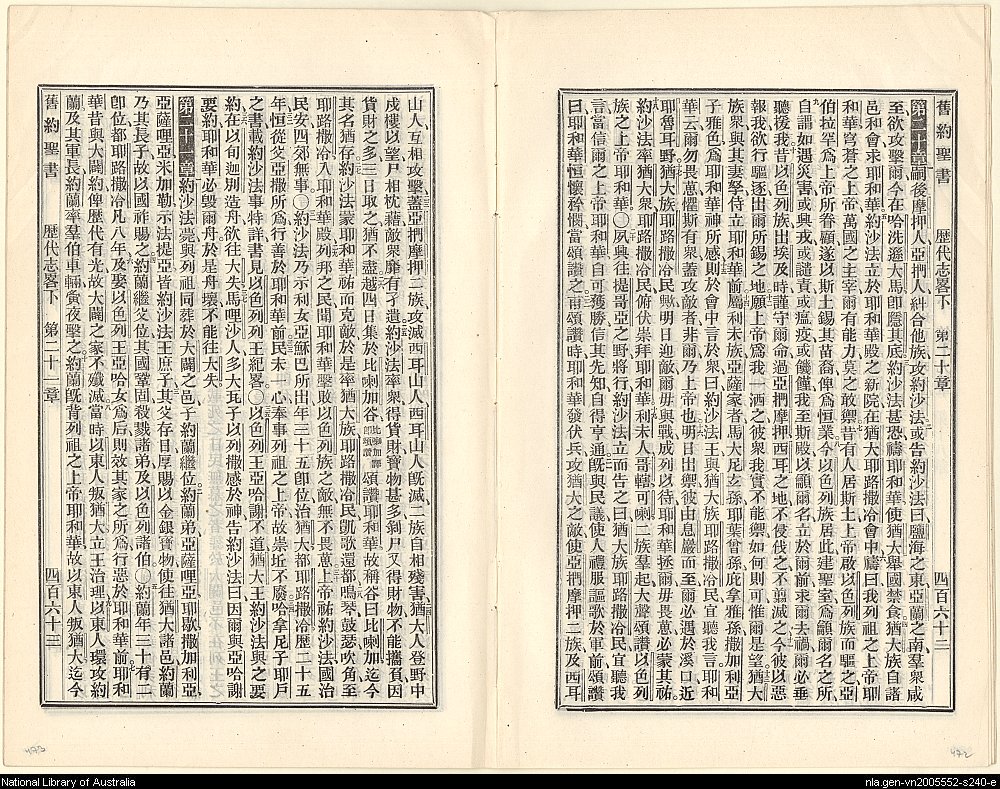 舊約聖書 歷代志畧下 第二十章 四百六十二
第二十章嗣後摩押人亞捫人糾合他族攻約沙法或告約沙法曰鹽海之東亞蘭之南羣衆咸
至欲攻擊爾今在哈洗遜大馬卽隱其底約沙法甚恐禱耶和華使猶大舉國禁食猶大族自諸
邑和會求耶和華約沙法立於耶和華殿之新院在猶大耶路撒冷會中禱曰我列祖之上帝耶
和華穹蒼之上帝萬國之主宰爾有能力莫之敢禦昔有人居斯土上帝歐以色列族而驅之亞
伯拉罕爲上帝所眷顧遂以斯土錫其苗裔俾爲恒業今以色列族居此建聖室爲籲爾名之所
自謂如遇災害或興戎或譴責或瘟疫或饑饉我至斯殿以籲爾名立於爾前求爾去禍爾必垂
聽援我昔以色列族出埃及時謹守爾命過亞捫摩押西耳之地不侵伐之不翦滅之今彼以惡
報我欲行驅逐出爾所錫之地願上帝爲我一洒之彼衆我寡實不能禦如何則可惟爾是望猶大
族衆與其妻孥侍立耶和華前屬利未族亞薩家者馬大尼玄孫耶葉曾孫庇拿雅孫撒加利亞
子雅色爲耶和華神所感則於會中言於衆曰約沙法王與猶大族耶路撒冷民宜聽我言耶和
華云爾勿畏葸懼斯有衆蓋攻敵者非爾乃上帝也明日出禦彼由息巖而至爾必遇於溪口近
耶魯耳野猶大族耶路撒冷民歟明日迎敵爾毋與戰成列以待耶和華拯爾毋畏葸必蒙其祐
約沙法率猶大衆耶路撒冷民俯伏崇拜耶和華利未人哥轄可喇二族羣起大聲頌讚以色列
族之上帝耶和華〇夙興往提哥亞之野將行約沙法立而告之曰猶大族耶路撒冷民宜聽我
言當信爾之上帝耶和華自可獲勝信其先知自得亨通旣與民議使人禮服謳歌於軍前頌讚
曰耶和華恒懷矜憫當頌讚之甫頌讚時耶和華發伏兵攻猶大之敵使亞捫摩押二族及西耳
山人互相攻擊蓋亞捫摩押二族攻滅西耳山人西耳山人旣滅二族自相殘害猶大人登野中
戍樓以望尸相枕藉敵衆靡有孑遺約沙法率衆得貨財寶物甚多剝尸又得財物不能攜負因
貨財之多三日取之猶不盡越四日集於比喇加谷比喇加譯卽頌讚頌讚耶和華故稱谷曰比喇加迄今
其名猶存約沙法蒙耶和華祐而克敵於是率猶大族耶路撒冷民凱歌還都鳴琴鼓瑟吹角至
耶路撒冷入耶和華殿列邦之民聞耶和華擊敗以色列族之敵無不畏葸上帝祐約沙法國治
民安四郊無事〇約沙法乃示利女亞穌巴所出年三十五卽位治猶大都耶路撒冷歷二十五
年恒從父亞撒所爲行善於耶和華前民未一心奉事列祖之上帝故崇坵不廢哈拿尼子耶戶
之書載約沙法事特詳書見以色列列王紀畧〇以色列王亞哈謝不道猶大王約沙法與之要
約在以旬迦別造舟欲往大失馬哩沙人多大瓦子以列撒感於神告約沙法曰因爾與亞哈謝
要約耶和華必毀爾舟於是舟壞不能往大失
第二十一章約沙法薨與列祖同葬於大闢之邑子約蘭繼位約蘭弟亞薩哩耶歇撒加利亞
亞薩哩亞米加勒示法提亞皆約沙法王庶子其父存日厚賜以金銀寶物使往猶大諸邑約蘭
乃其長子故以國祚賜之約蘭繼父位其國鞏固殺戮諸弟及以色列諸伯〇約蘭年三十有二
卽位都耶路撒冷凡八年及娶以色列王亞哈女爲后則效其家之所爲行惡於耶和華前耶和
華昔與大闢約俾歷代有光故大闢之家不殲滅當時以東人叛猶大立王治理以東人環攻約
蘭及其軍長約蘭率羣伯車輛夤夜擊之約蘭旣背列祖之上帝耶和華故以東人叛猶大迄今
舊約聖書 歷代志畧下 第二十一章 四百六十三
473
472
National Library of Australia
nla.gen-vn2005552-s240-e